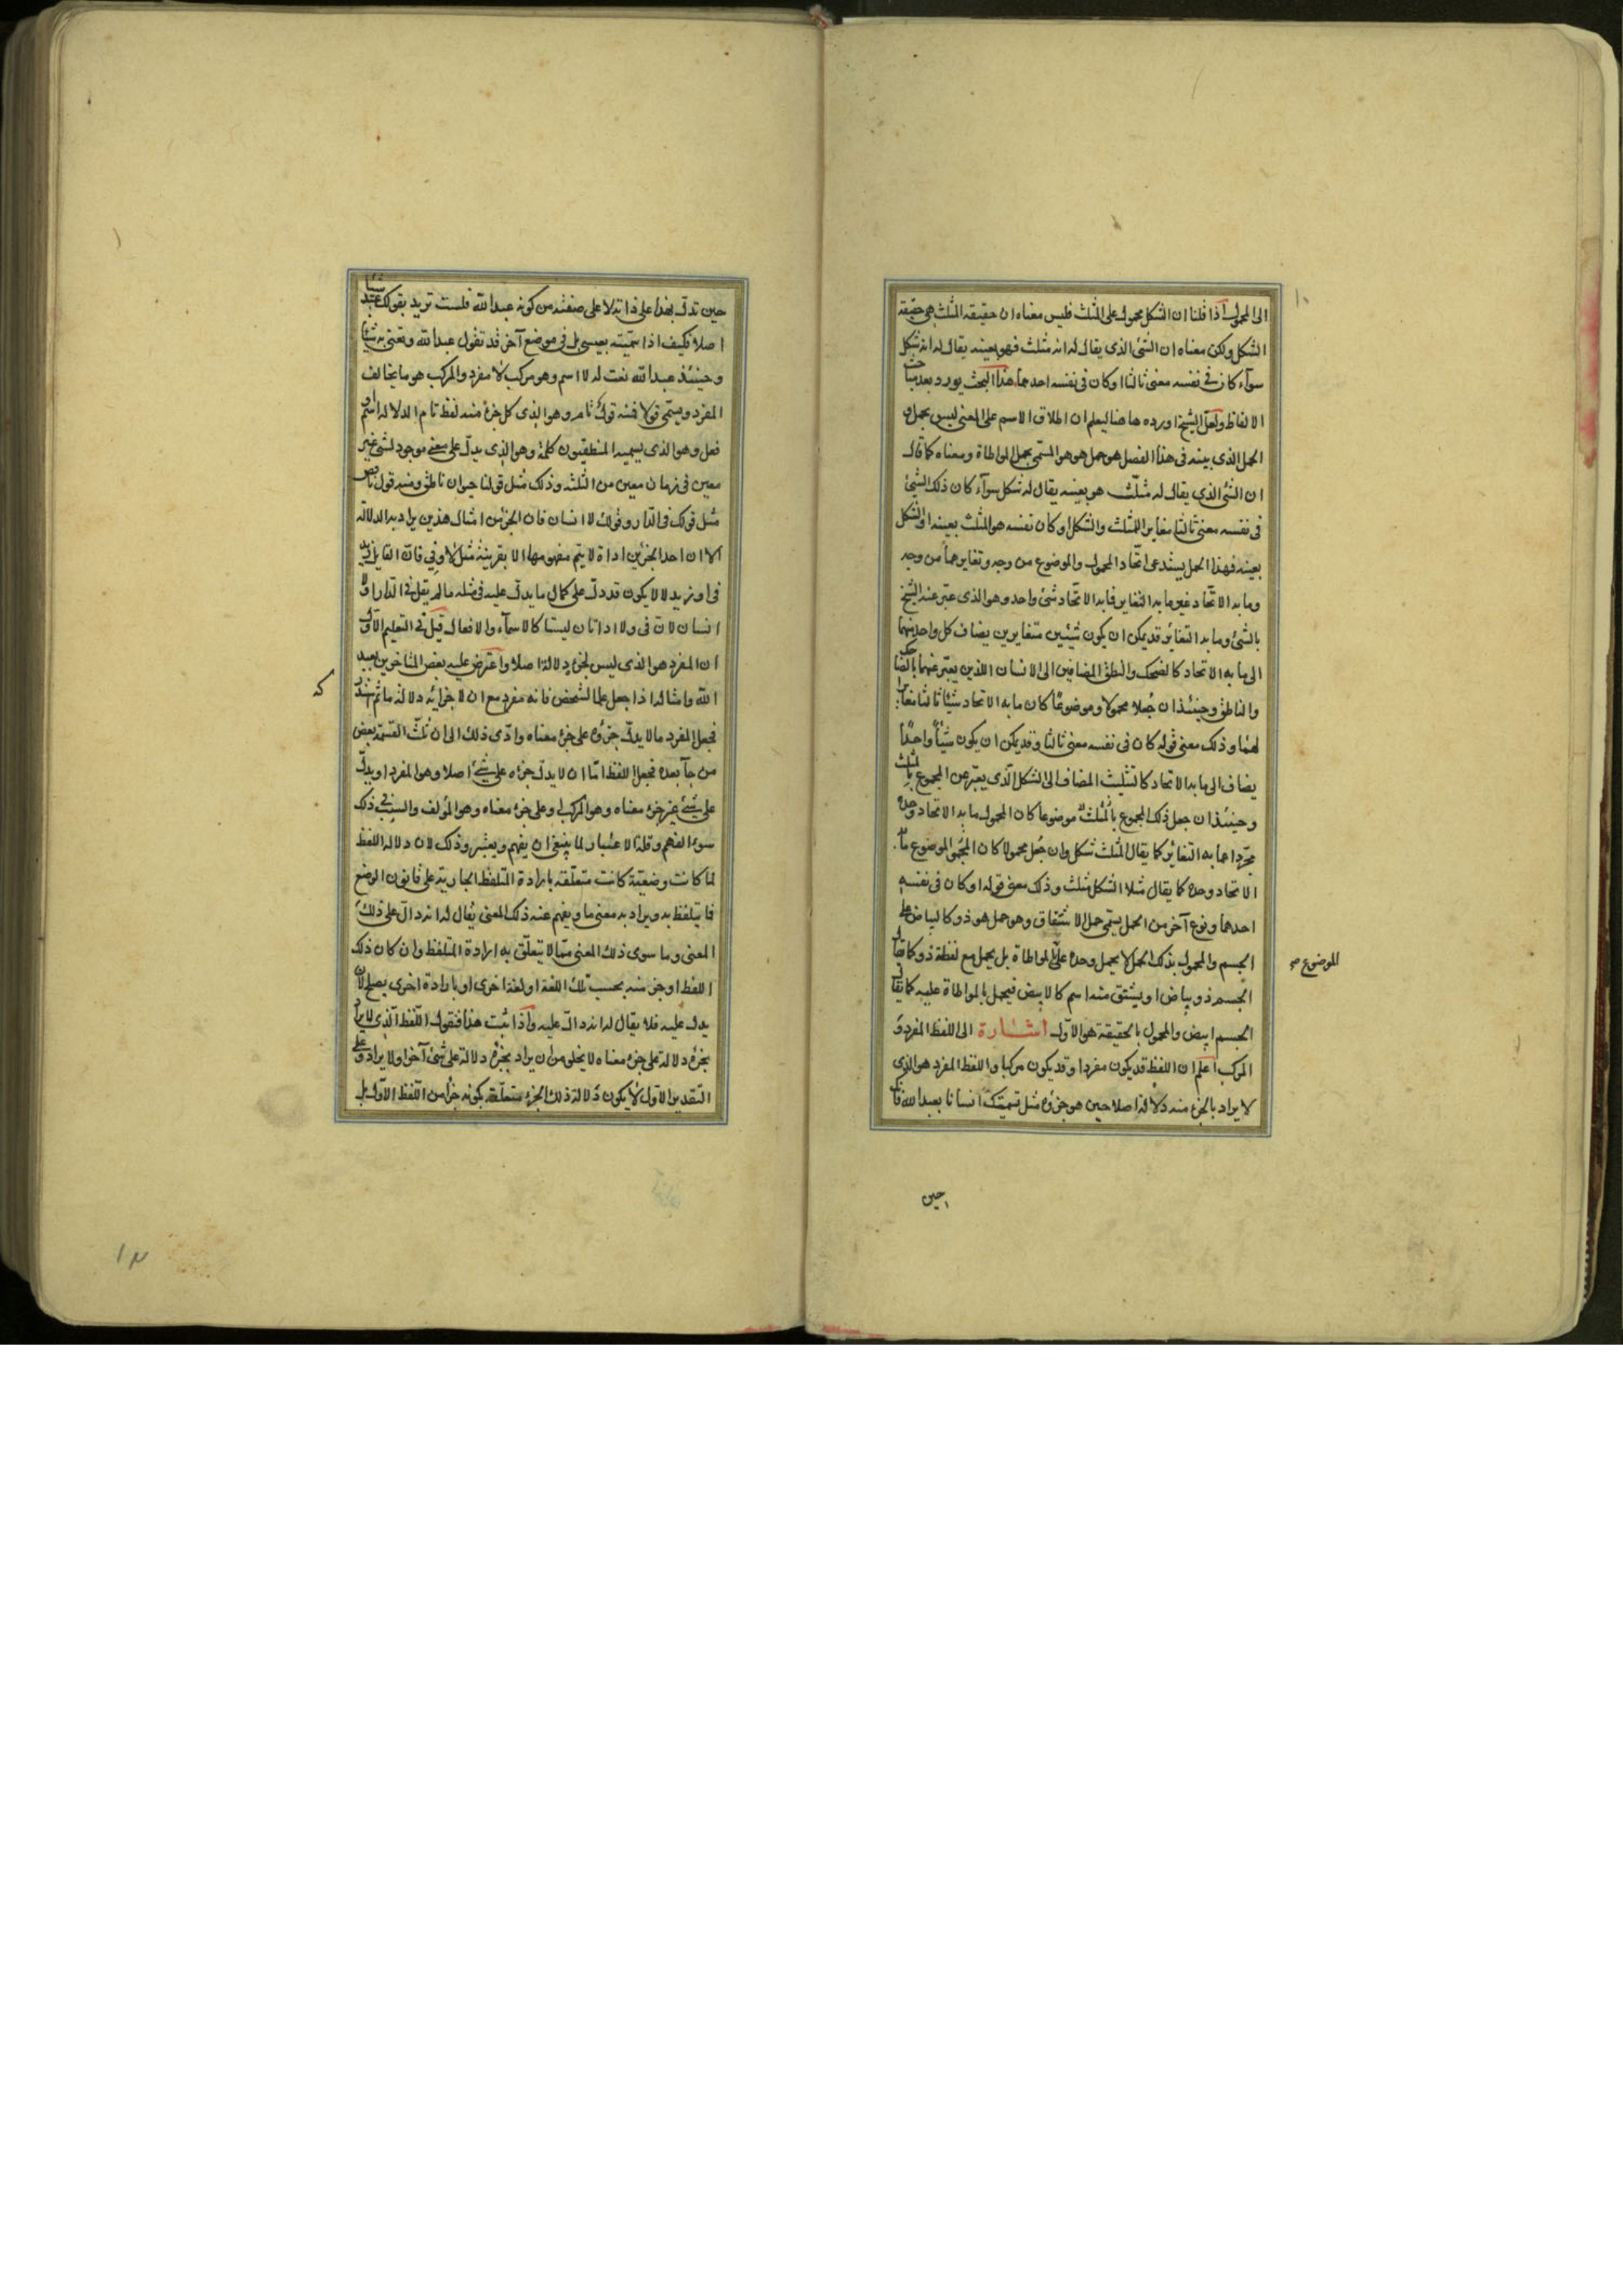 الى المحمول اذا قلنا ان الشكل محمول على المثلث فليس معناه ان حقيقة المثلث هى حقيقة
الشكل ولكن معناه ان الشئ الذى يقال له انه مثلث فهو بعينه يقال له انه شكل
سوآء كان فى نفسه معنى ثالثا او كان فى نفسه احدهما هذا البحث يورد بعد مباحث
الالفاظ ولعل الشيخ اورده هاهنا ليعلم ان اطلاق الاسم على المعنى ليس بحمل و
الحمل الذى بينه فى هذا الفصل هو حمل هو هو المسمى بحمل المواطاة ومعناه كما قال
ان الشئ الذى يقال له مثلث هو بعينه يقال له شكل سوآء كان ذلك الشئ
فى نفسه معنى ثالثا مغايرا للمثلث والشكل او كان نفسه هو المثلث بعينه او الشكل
بعينه فهذا الحمل يستدعى اتحاد المحمول والموضوع من وجه وتغايرهما من وجه
وما به الاتحاد غير ما به التغاير فما به الاتحاد شئ واحد وهو الذى عبر عنه الشيخ
بالشئ وما به التغاير قد يمكن ان يكون شيئين متغايرين يضاف كل واحد منهما
الى ما به الاتحاد كالضحك والنطق المضافين الى الانسان اللذين يعبر عنهما بالضاحك
والناطق وحينئذ ان جعلا محمولا وموضوعا كان ما به الاتحاد شيئا ثالثا مغايرا
لهما وذلك معنى قوله كان فى نفسه معنى ثالثا وقد يمكن ان يكون شيئا واحدا
يضاف الى ما به الاتحاد كالتثليث المضاف الى الشكل الذى يعبر عن المجموع بالمثلث
وحينئذ ان جعل ذلك المجموع بالمثلث موضوعا كان المحمول ما به الاتحاد وحده
مجردا عما به التغاير كما يقال المثلث شكل وان جعل محمولا كان الموضوع ما به
الاتحاد وحده كما يقال مثلا الشكل مثلث وذلك معنى قوله او كان فى نفسه
احدهما ونوع آخر من الحمل يسمى حمل الاشتقاق وهو حمل هو ذو كالبياض على
الجسم والمحمول بذلك الحمل لا يحمل وحده على بالمواطاة بل يحمل مع لفظة ذو كما يقال
الموضوع صح
الجسم ذو بياض او يشتق منه اسم كالابيض فيحمل بالمواطاة عليه كما يقال
الجسم ابيض والمحمول بالحقيقة هو الاول اشارة الى اللفظ المفرد و
المركب اعلم ان اللفظ قد يكون مفردا وقد يكون مركبا واللفظ المفرد هو الذى
لا يراد بالجزء منه دلالة اصلا حين هو جزؤه مثل تسميتك انسانا بعبدالله فان
حين
حين تدل بهذا على ذاته لا على صفته من كونه عبدالله فلست تريد بقولك عبد شيئا
اصلا فكيف اذا سميته بعيسى بل فى موضع آخر قد تقول عبدالله وتعنى به شيئا
وحينئذ عبدالله نعت له لا اسم وهو مركب لا مفرد والمركب هو ما يخالف
المفرد ويسمى قولا فمنه قول تام وهو الذى كل جزء منه لفظ تام الدلالة اسم او
فعل وهو الذى يسميه المنطقيون كلمة وهو الذى يدل على معنى موجود لشئ غير
معين فى زمان معين من الثلثة وذلك مثل قولنا حيوان ناطق ومنه قول ناقص
مثل قولك فى الدار وقولك لا انسان فان الجزء من امثال هذين يراد به الدلالة
الا ان احد الجزئين اداة لا يتم مفهومها الا بقرينة مثل لا وفى فان القايل زيد
فى او زيد لا لا يكون قد دل على كمال ما يدل عليه فى مثله ما لم يقل فى الدار او لا
انسان لان فى ولا اداتان ليستا كالاسمآء والافعال قيل فى التعليم الاول
ان المفرد هو الذى ليس لجزئه دلالة اصلا واعترض عليه بعض المتاخرين بعبد
الله وامثاله اذا جعل علما لشخص فانه مفرد مع ان لاجزائه دلالة ما ثم استدرك
فجعل المفرد ما لا يدل جزؤه على جزء معناه وادى ذلك الى ان ثلث القسمة بعض
من جآء بعده فجعل اللفظ اما ان لا يدل جزؤه على شئ اصلا وهو المفرد او يدل
على شئ غير جزء معناه وهو المركب او على جزء معناه وهو المؤلف والسبب فى ذلك
سوء الفهم وقلة الاعتبار لما ينبغى ان يفهم ويعتبر وذلك لان دلالة اللفظ
لما كانت وضعية كانت متعلقة بارادة المتلفظ الجارية على قانون الوضع
فما يتلفظ به ويراد به معنى ما ويفهم عنه ذلك المعنى يقال له انه دال على ذلك
المعنى وما سوى ذلك المعنى مما لا يتعلق به ارادة المتلفظ وان كان ذلك
اللفظ او جزء منه بحسب تلك اللغة او لغة اخرى او بارادة اخرى يصلح لان
يدل عليه فلا يقال له انه دال عليه واذا ثبت هذا فنقول اللفظ الذى لا يراد
بجزئه دلالة على جزء معناه لا يخلو من ان يراد بجزئه دلالة على شئ آخر او لا يراد وعلى
التقدير الاول لا يكون دلالة ذلك الجزء متعلقة بكونه جزءا من اللفظ الاول بل
١٣